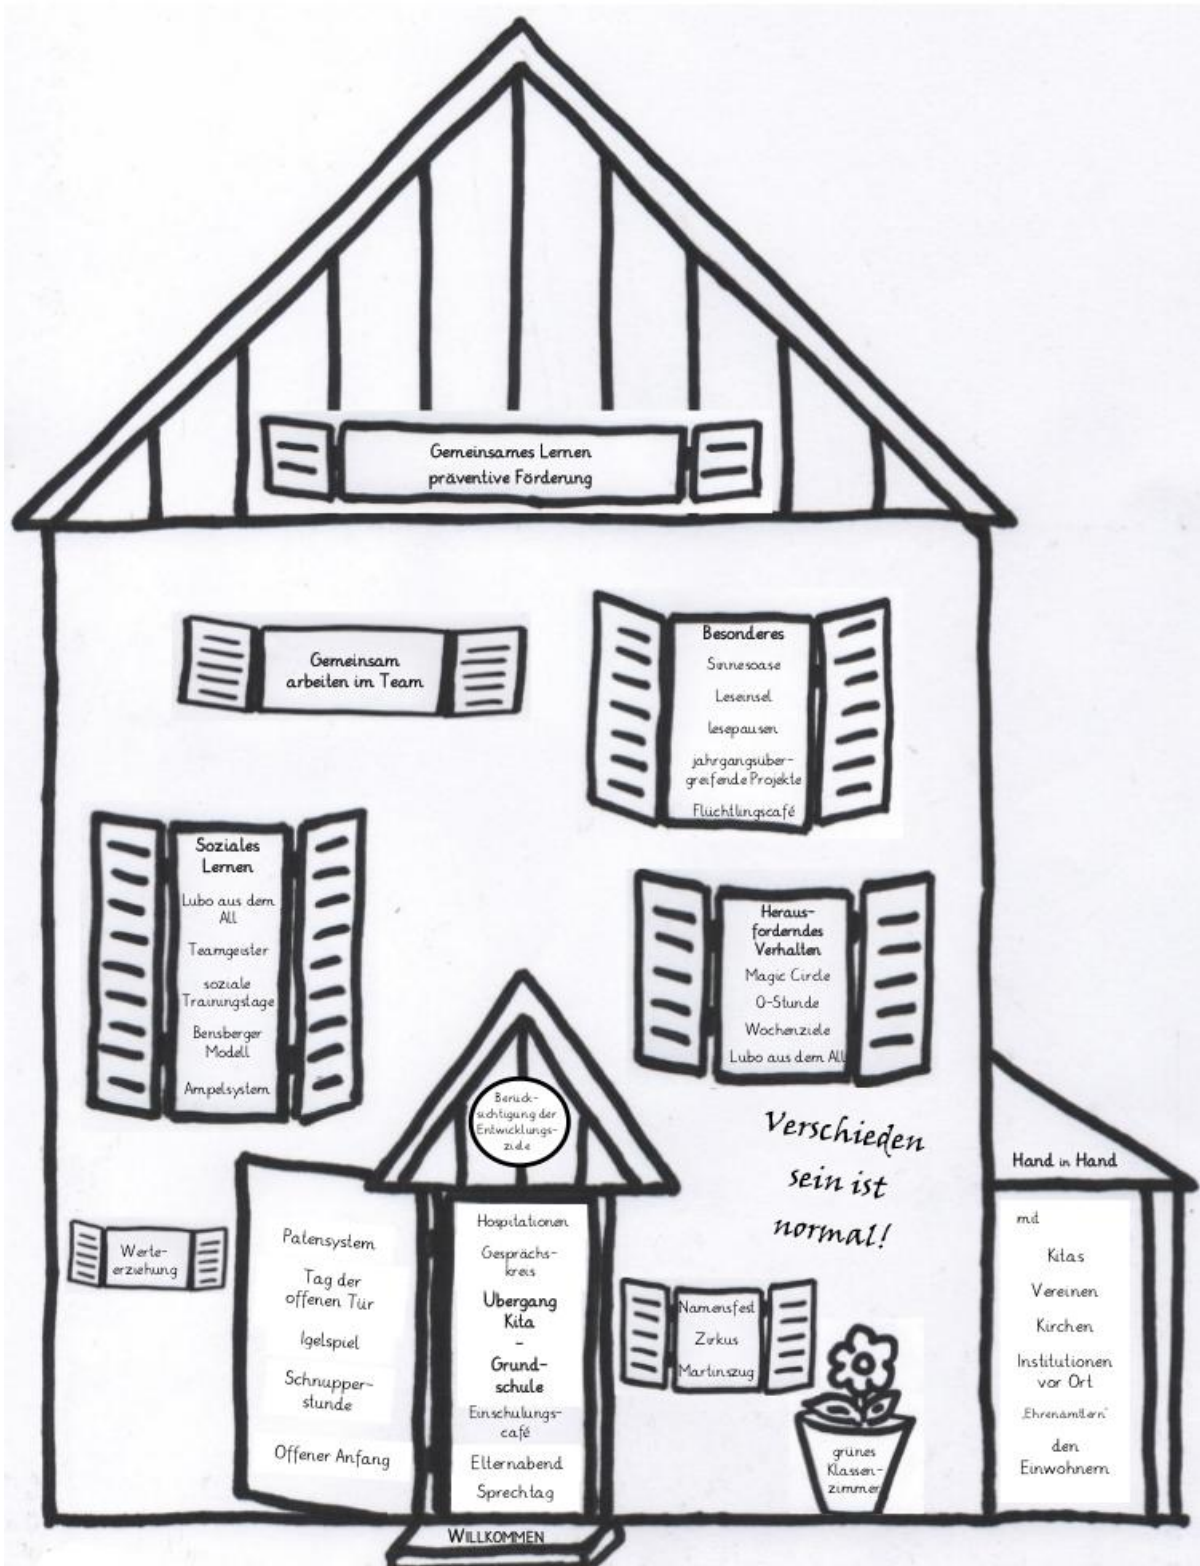 Gemeinsames Lernen
präventive Förderung
Gemeinsam
arbeiten im Team
Besonderes
Sinnesoase
Leseinsel
lesepausen
jahrgangsüber-
greifende Projekte
Flüchtlingscafé
Soziales
Lernen
Lubo aus dem
All
Teamgeister
soziale
Trainingstage
Bensberger
Modell
Ampelsystem
Heraus-
forderndes
Verhalten
Magic Circle
0-Stunde
Wochenziele
Lubo aus dem All
Berück-
sichtigung der
Entwicklungs-
ziele
Verschieden
sein ist
normal!
Hand in Hand
mit
Kitas
Vereinen
Kirchen
Institutionen
vor Ort
„Ehrenamtlern“
den
Einwohnern
Werte-
erziehung
Patensystem
Tag der
offenen Tür
Igelspiel
Schnupper-
stunde
Offener Anfang
Hospitationen
Gesprächs-
kreis
Übergang
Kita
-
Grund-
schule
Einschulungs-
café
Elternabend
Sprechtag
Namensfest
Zirkus
Martinszug
grünes
Klassen-
zimmer
WILLKOMMEN